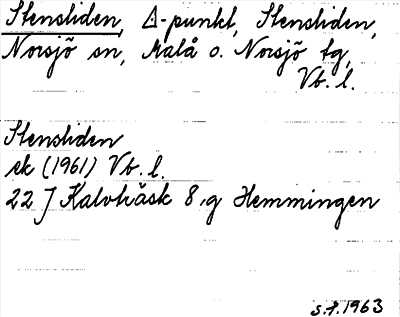 Stensliden, Δ-punkt, Stensliden,
Norsjö sn, Malå o. Norsjö tg,
Vb. l.
Stensliden
ek (1961) Vb. l.
22 J Kalvträsk 8,g Hemmingen
s.f. 1963